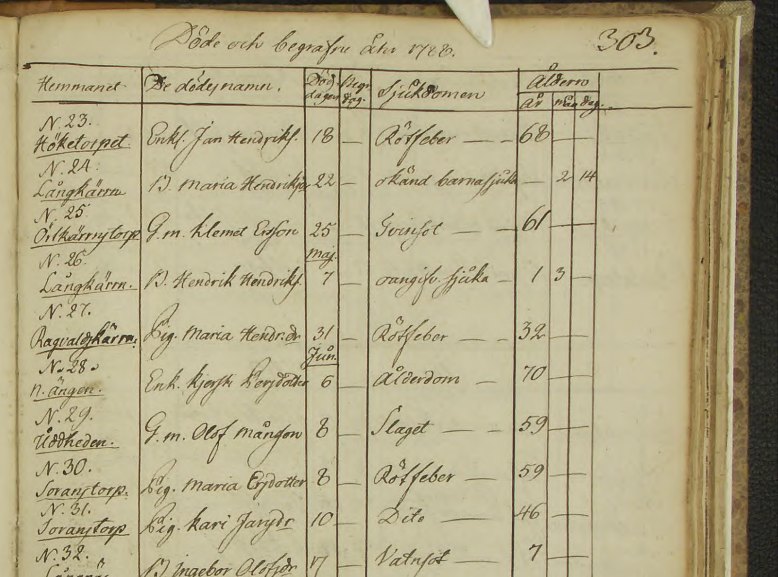 Döde och begrafne åhr 1788. 303.
Hemmanet. De dödes namn. Död dagen Begr. dag. Sjukdomen Åldern
År Mån. dag.
N. 23.
Höketorpet Enks. Jan Hendriks. 18 — Rötfeber — — 68 — —
N. 24.
Långkärrn B. Maria Hendriksdr 22 — okänd barnasjuka — 2 14
N. 25
Örtkärnstorp G. m. Klemet Ersson 25 — — 61 — —
N. 26. Maj.
Långkärrn. B. Hendrik Hendriks. 7 — oangifv. sjuka — 1 3 —
N. 27.
Ragvaldskärrn. Pig. Maria Hendr.dr 31 — Rötfeber — — 32 — —
N. 28. Jun.
N. ängen. Enk. Kjersti Persdotter 6 — Ålderdom — 70 — —
N. 29.
Uddheden. G. m. Olof Månsson 8 — Slaget — — 59 — —
N. 30.
Soranstorp. Pig. Maria Ersdotter 8 — Rötfeber — — 59 — —
N. 31.
Soranstorp Pig. Kari Jansdr 10 — Dito — — 46 — —
N. 32.
B. Ingebor Olofsdr 7 — Vatnsot — — 7 — —